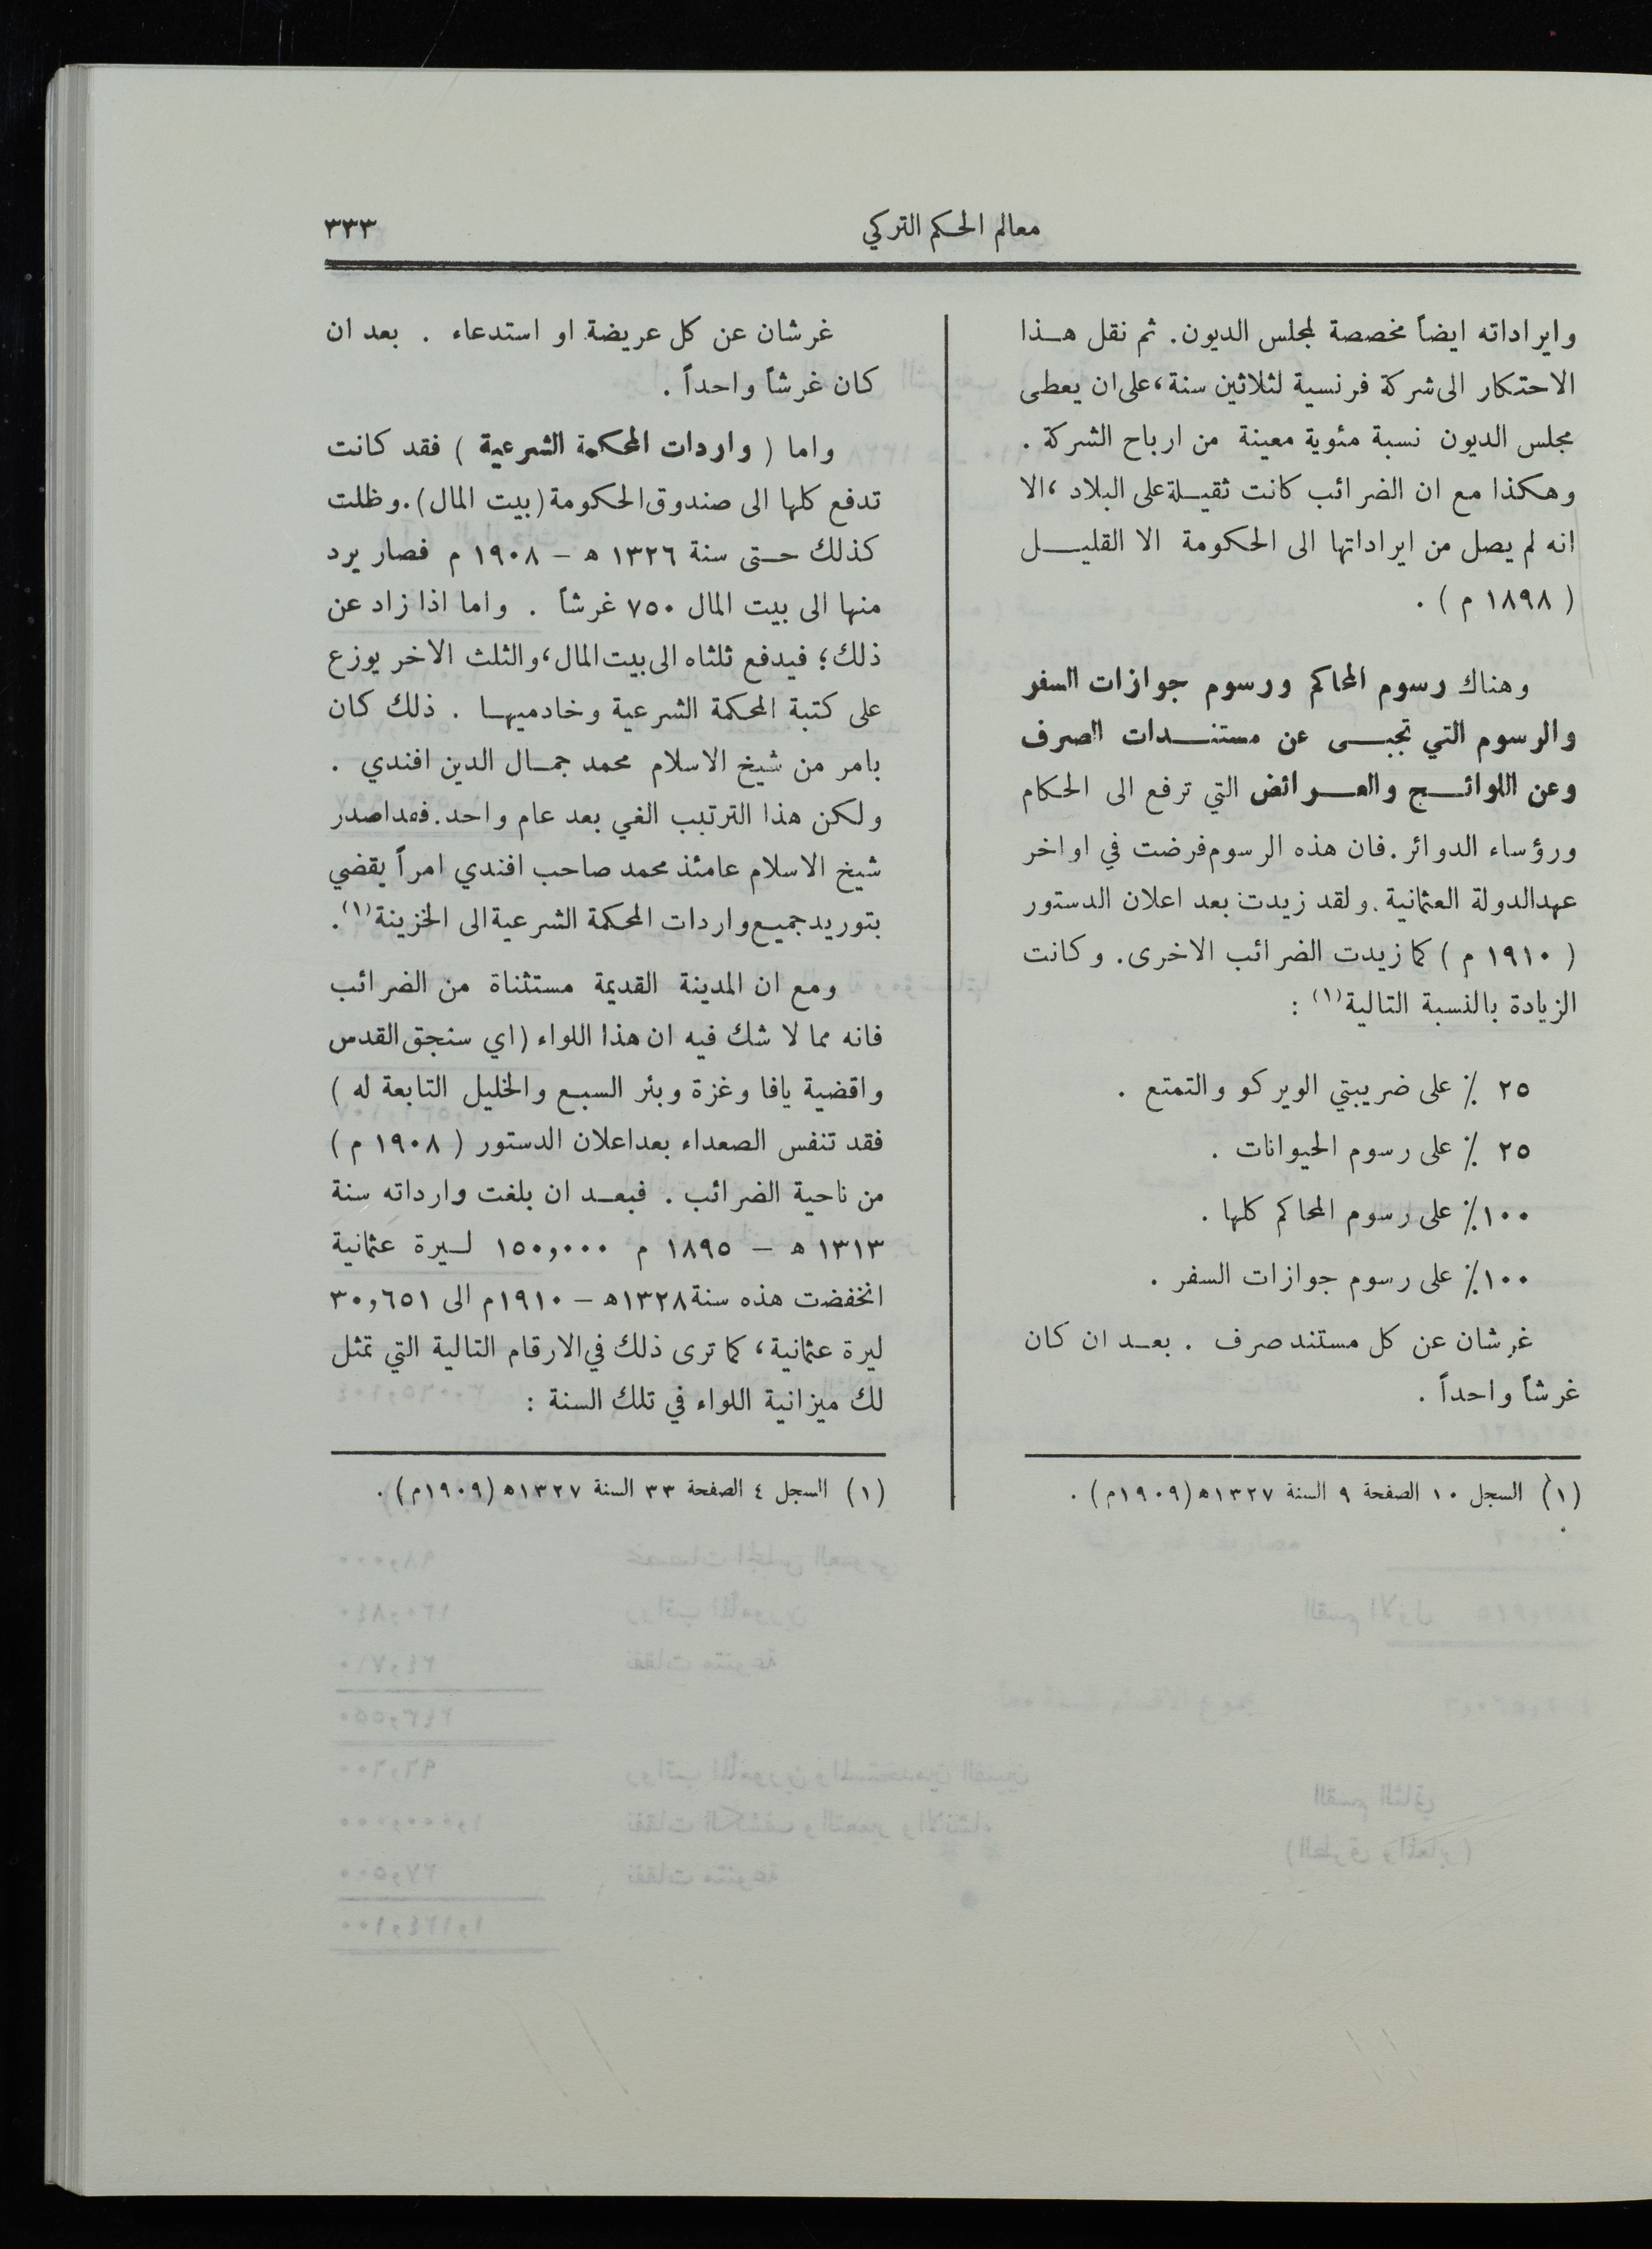 معالم الحكم التركي
٣٣٣
وايراداته ايضاً مخصصة لمجلس الديون. ثم نقل هذا
الاحتكار الى شركة فرنسية لثلاثين سنة، على ان يعطى
مجلس الديون نسبة مئوية معينة من ارباح الشركة .
وهكذا مع ان الضرائب كانت ثقيلة على البلاد ، الا
انه لم يصل من ايراداتها الى الحكومة الا القليل
( ١٨٩٨ م ) .
وهناك رسوم المحاكم ورسوم جوازات السفر
والرسوم التي تجبى عن مستندات الصرف
وعن اللوائح والعرائض التي ترفع الى الحكام
ورؤساء الدوائر. فان هذه الرسوم فرضت في اواخر
عهد الدولة العثانية. ولقد زيدت بعد اعلان الدستور
( ١٩١٠ م ) كما زيدت الضرائب الاخرى. وكانت
الزيادة بالنسبة التالية(١) :
٢٥ ٪ على ضريبتي الويركو والتمتع .
٢٥ ٪ على رسوم الحيوانات .
١٠٠٪ على رسوم المحاكم كلها .
١٠٠٪ على رسوم جوازات السفر .
غرشان عن كل مستند صرف . بعد ان كان
غرشاً واحداً .
(١) السجل ١٠ الصفحة ٩ السنة ١٣٢٧ه (١٩٠٩م) .
غرشان عن كل عريضة او استدعاء . بعد ان
كان غرشاً واحداً .
واما ( واردات المحكمة الشرعية ) فقد كانت
تدفع كلها الى صندوق الحكومة (بيت المال). وظلت
كذلك حتى سنة ١٣٢٦ ه – ١٩٠٨ م فصار يرد
منها الى بيت المال ٧٥٠ غرشاً . واما اذا زاد عن
ذلك؛ فيدفع ثلثاه الى بيت المال، والثلث الاخر يوزع
على كتبة المحكمة الشرعية وخادميها . ذلك كان
بامر من شيخ الاسلام محمد جمال الدين افندي .
ولكن هذا الترتيب الغي بعد عام واحد. فقد اصدر
شيخ الاسلام عامئذ محمد صاحب افندي امراً يقضي
بتوريد جميع واردات المحكمة الشرعية الى الخزينة(١).
ومع ان المدينة القديمة مستثناة من الضرائب
فانه مما لا شك فيه ان هذا اللواء (اي سنجق القدس
واقضية يافا وغزة وبئر السبع والخليل التابعة له )
فقد تنفس الصعداء بعد اعلان الدستور ( ١٩٠٨ م )
من ناحية الضرائب . فبعد ان بلغت وارداته سنة
١٣١٣ ه – ١٨٩٥ م ١٥٠,٠٠٠ ليرة عثمانية
انخفضت هذه سنة ١٣٢٨ه – ١٩١٠م الى ٣٠,٦٥١
ليرة عثمانية، كما ترى ذلك في الارقام التالية التي تمثل
لك ميزانية اللواء في تلك السنة :
(١) السجل ٤ الصفحة ٣٣ السنة ١٣٢٧ه (١٩٠٩م) .